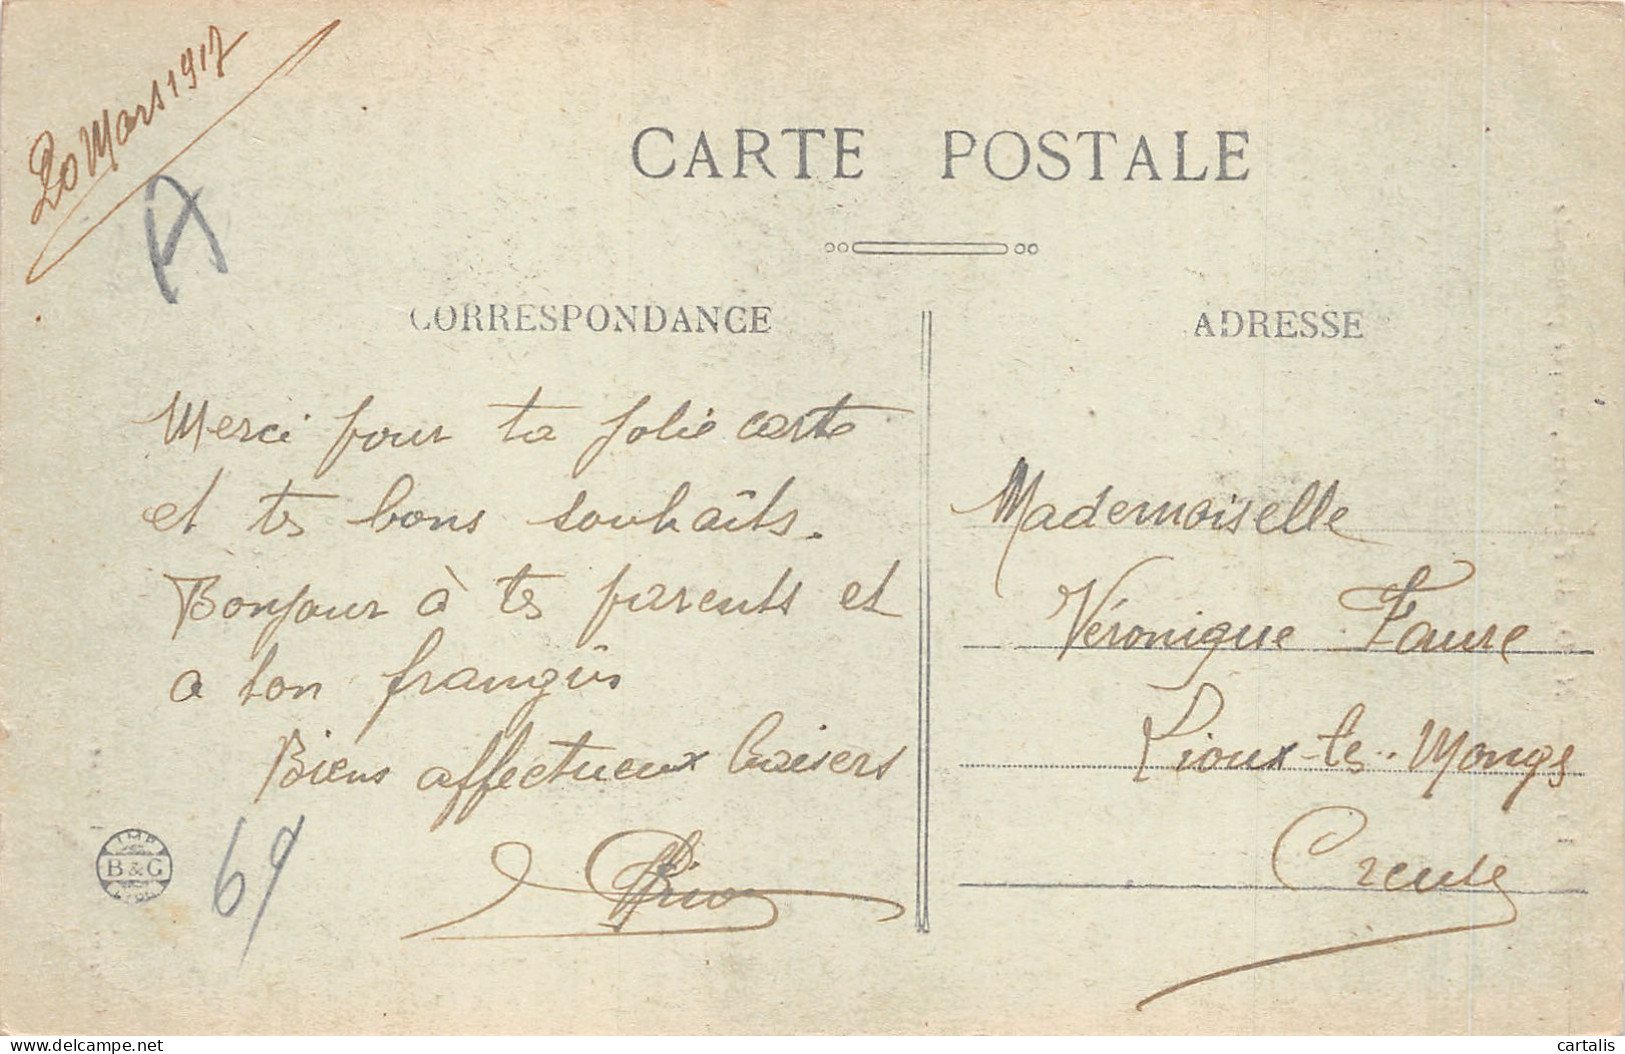 20 Mars 1917
CARTE POSTALE
CORRESPONDANCE
ADRESSE
Merci pour ta jolie carte
et tes bons souhaits.
Bonjour à tes parents et
a ton frangin
Biens affectueux baisers
Mademoiselle
Véronique Faure
Rioux-les-Monges
Creuse
IMP
B & G
LYON
69
delcampe.net
cartalis